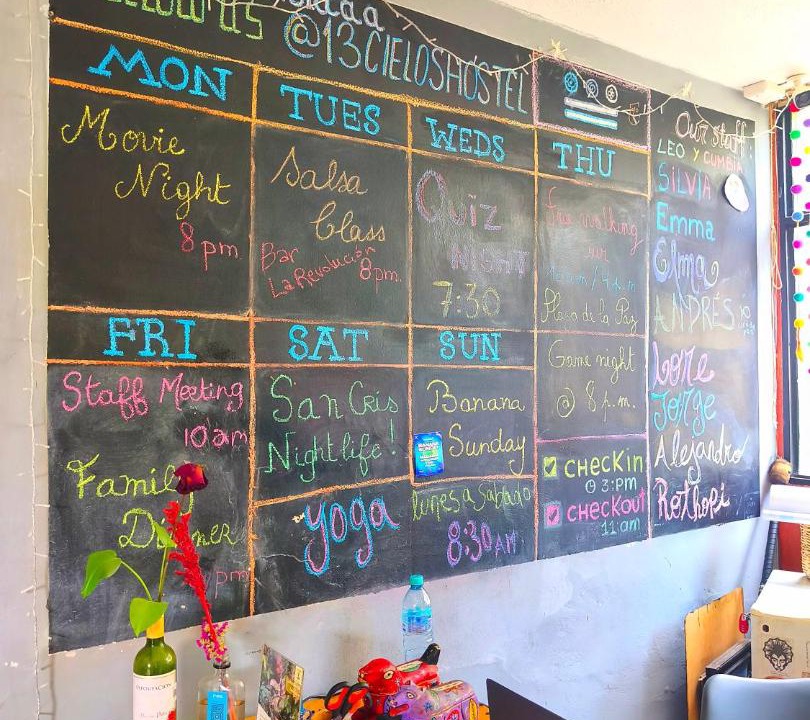 @13CIELOSHOSTEL
MON
Movie
Night
8 pm
TUES
Salsa
Class
Bar
La Revolución
8pm.
WEDS
Quiz
NIGHT
7:30
THU
free walking
Plaza de la Paz
Game night
@ 8 p.m.
FRI
Staff Meeting
10am
Family
Dinner
pm
SAT
San Cris
Nightlife!
SUN
Banana
Sunday
yoga
lunes a Sabado
8:30 AM
checkin
@ 3:pm
checkout
11:am
Our Staff:
LEO Y CUMBIA
SiLViA
Emma
Elma
ANDRÉS
Lore
Jorge
Alejandro